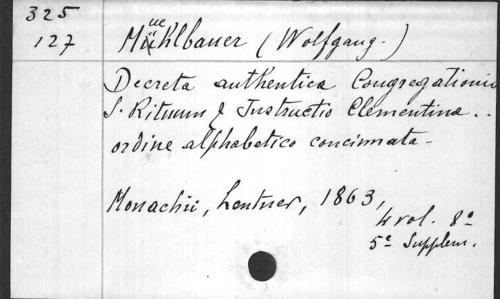 325
127
Mühlbauer (Wolfgang.)
ue
Decreta authentica Congregationis
S. Rituum & Instructio Clementina..
ordine alphabetico concinnata -
Monachii, Lentner, 1863,
4 vol. 8º
5e Supplem.